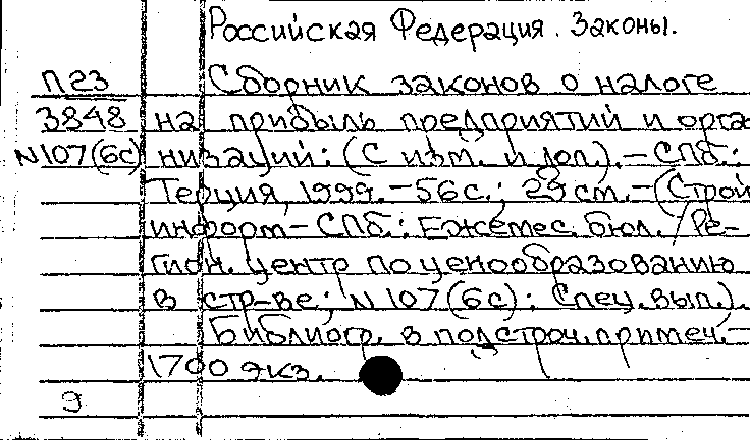 Российская Федерация. Законы.
П23 Сборник законов о налоге
3848 на прибыль предприятий и орга
N107(6с) низаций: (С изм. и доп.). – СПб.:
Терция, 1999. – 56с.; 29см. – (Строй
информ – СПб.: Ежемес. бюл. / Ре-
гион. центр по ценообразованию
в стр-ве; N107(6с): Спец. вып.).
Библиогр. в подстроч. примеч. –
1700 экз.
9